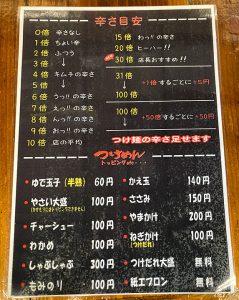 辛さ目安
0倍 辛さなし
1倍 ちょい辛
2倍 ふつう
3倍 ↓
4倍 キムチの辛さ
5倍 ↓
6倍 うっ!!の辛さ
7倍 えっ!!の辛さ
8倍 んっ!!の辛さ
9倍 おっ!!の辛さ
10倍 店の平均
15倍 わっ!!の辛さ
20倍 ヒーハー!!
30倍 店長おすすめ!!
31倍
↓ +1倍するごとに+5円
100倍
↓ +50倍するごとに+50円
つけ麺の辛さ足せます
つけめん
トッピングetc・・・
・ゆで玉子(半熟) 60円
・やさい大盛 100円
・チャーシュー 100円
・わかめ 100円
・しゃぶしゃぶ 300円
・もみのり 100円
・かえ玉 140円
・ささみ 150円
・やまかけ 200円
・ねぎかけ 100円
(つけだれ)
・つけだれ大盛 無料
・紙エプロン 無料